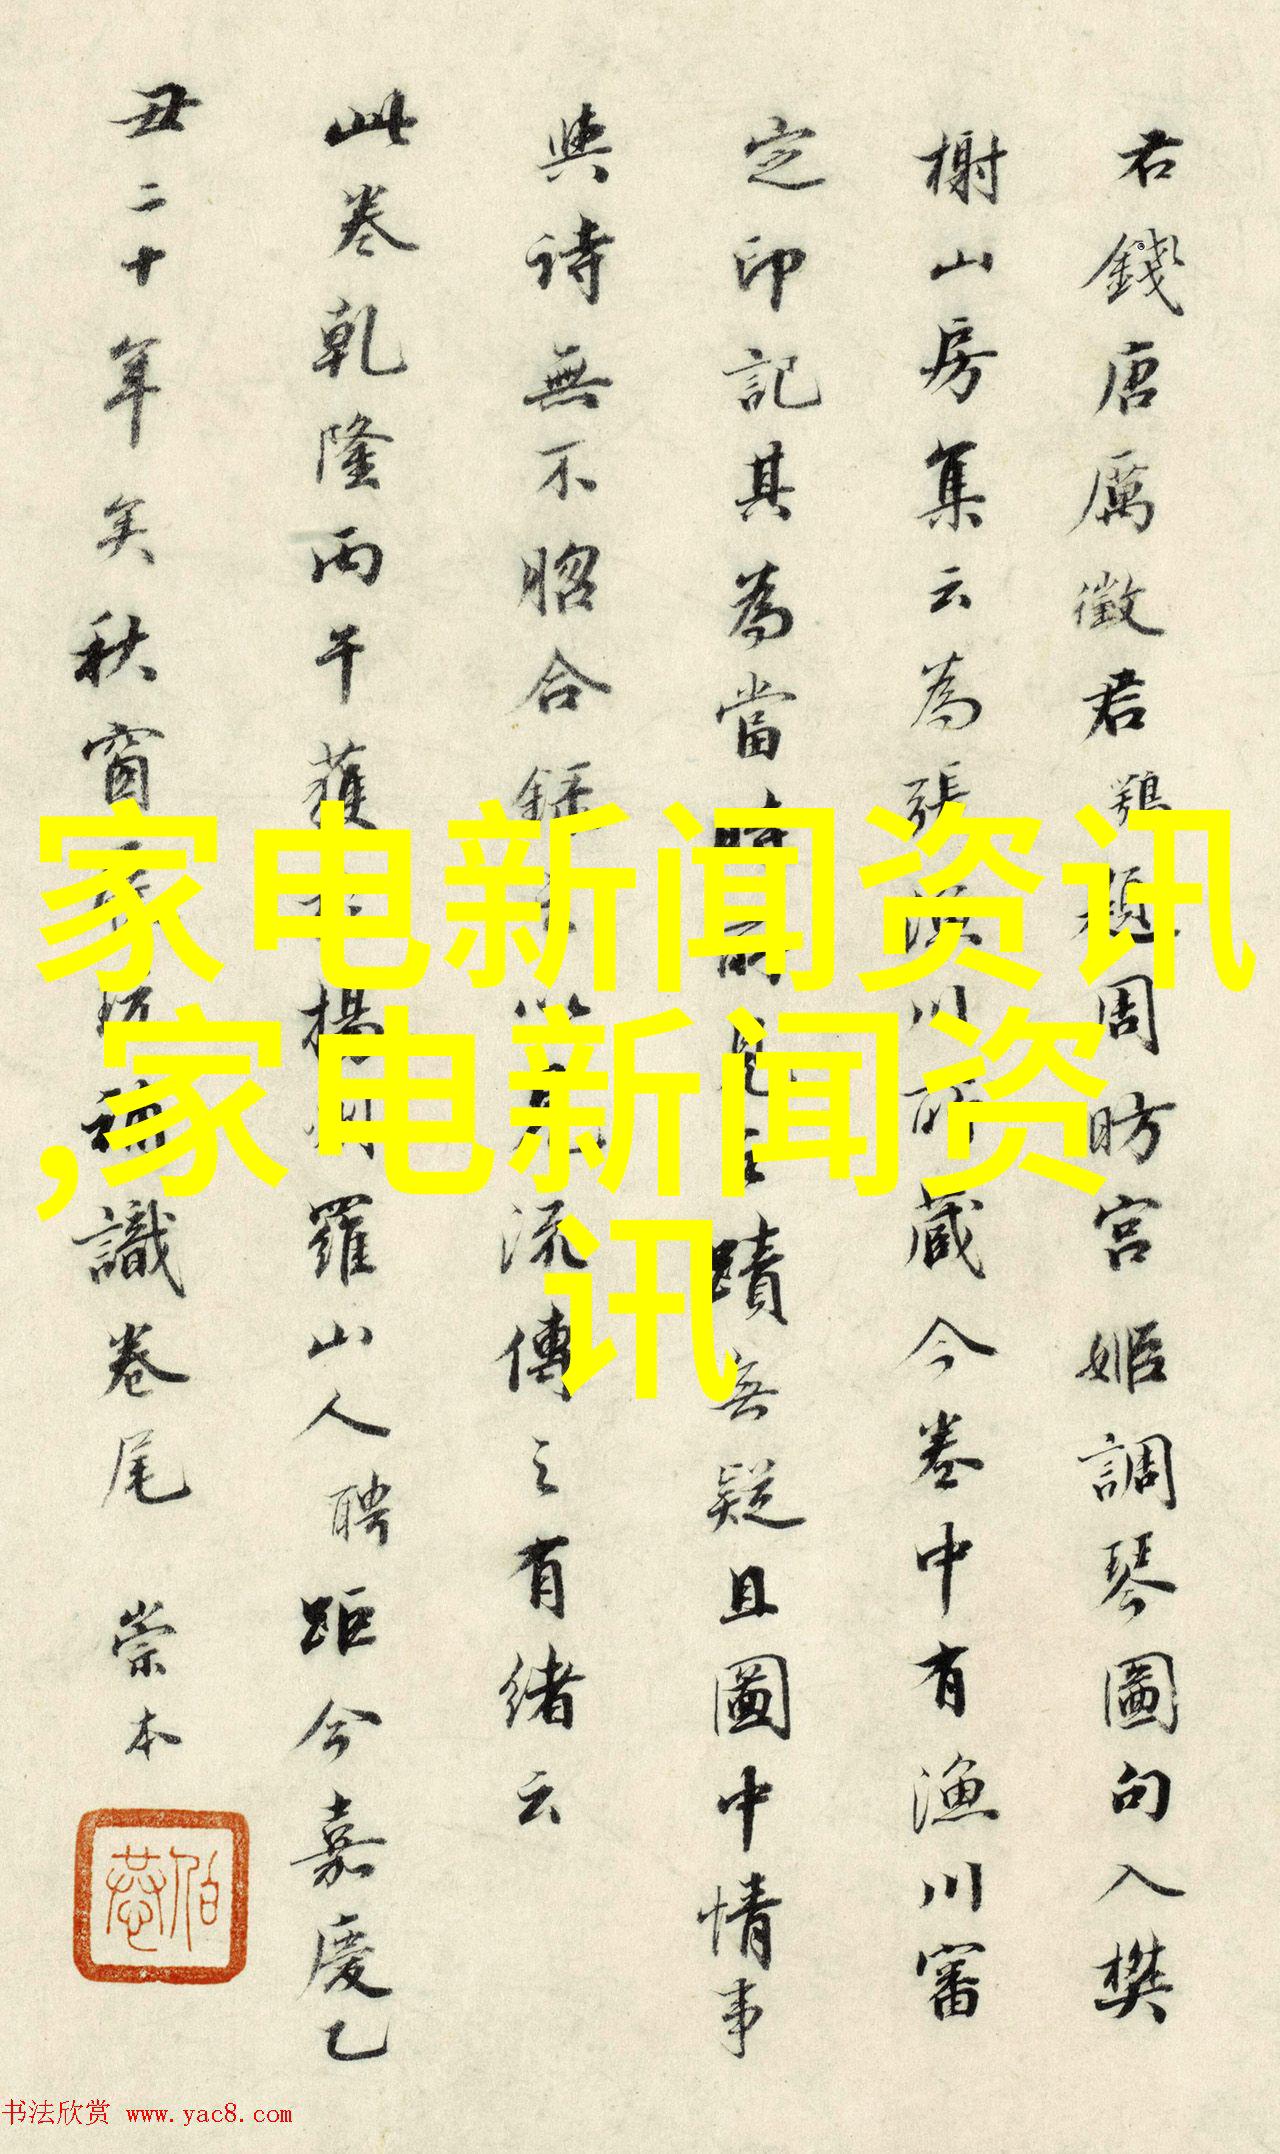 君錢唐厲徵君鶚題周昉宫姬調琴圖句入樊
榭山房集云為張漁川所藏今卷中有漁川審
定印記其為當時 真蹟無疑且圖中情事
與詩無不脗合 流傳之有緒云
此卷乾隆丙午獲 揚州羅山人聘距今嘉慶乙
丑二十年矣秋窗 識卷尾 崇本
伯恭
家电新闻资讯
,家电新闻资
讯
书法欣赏 www.yac8.com